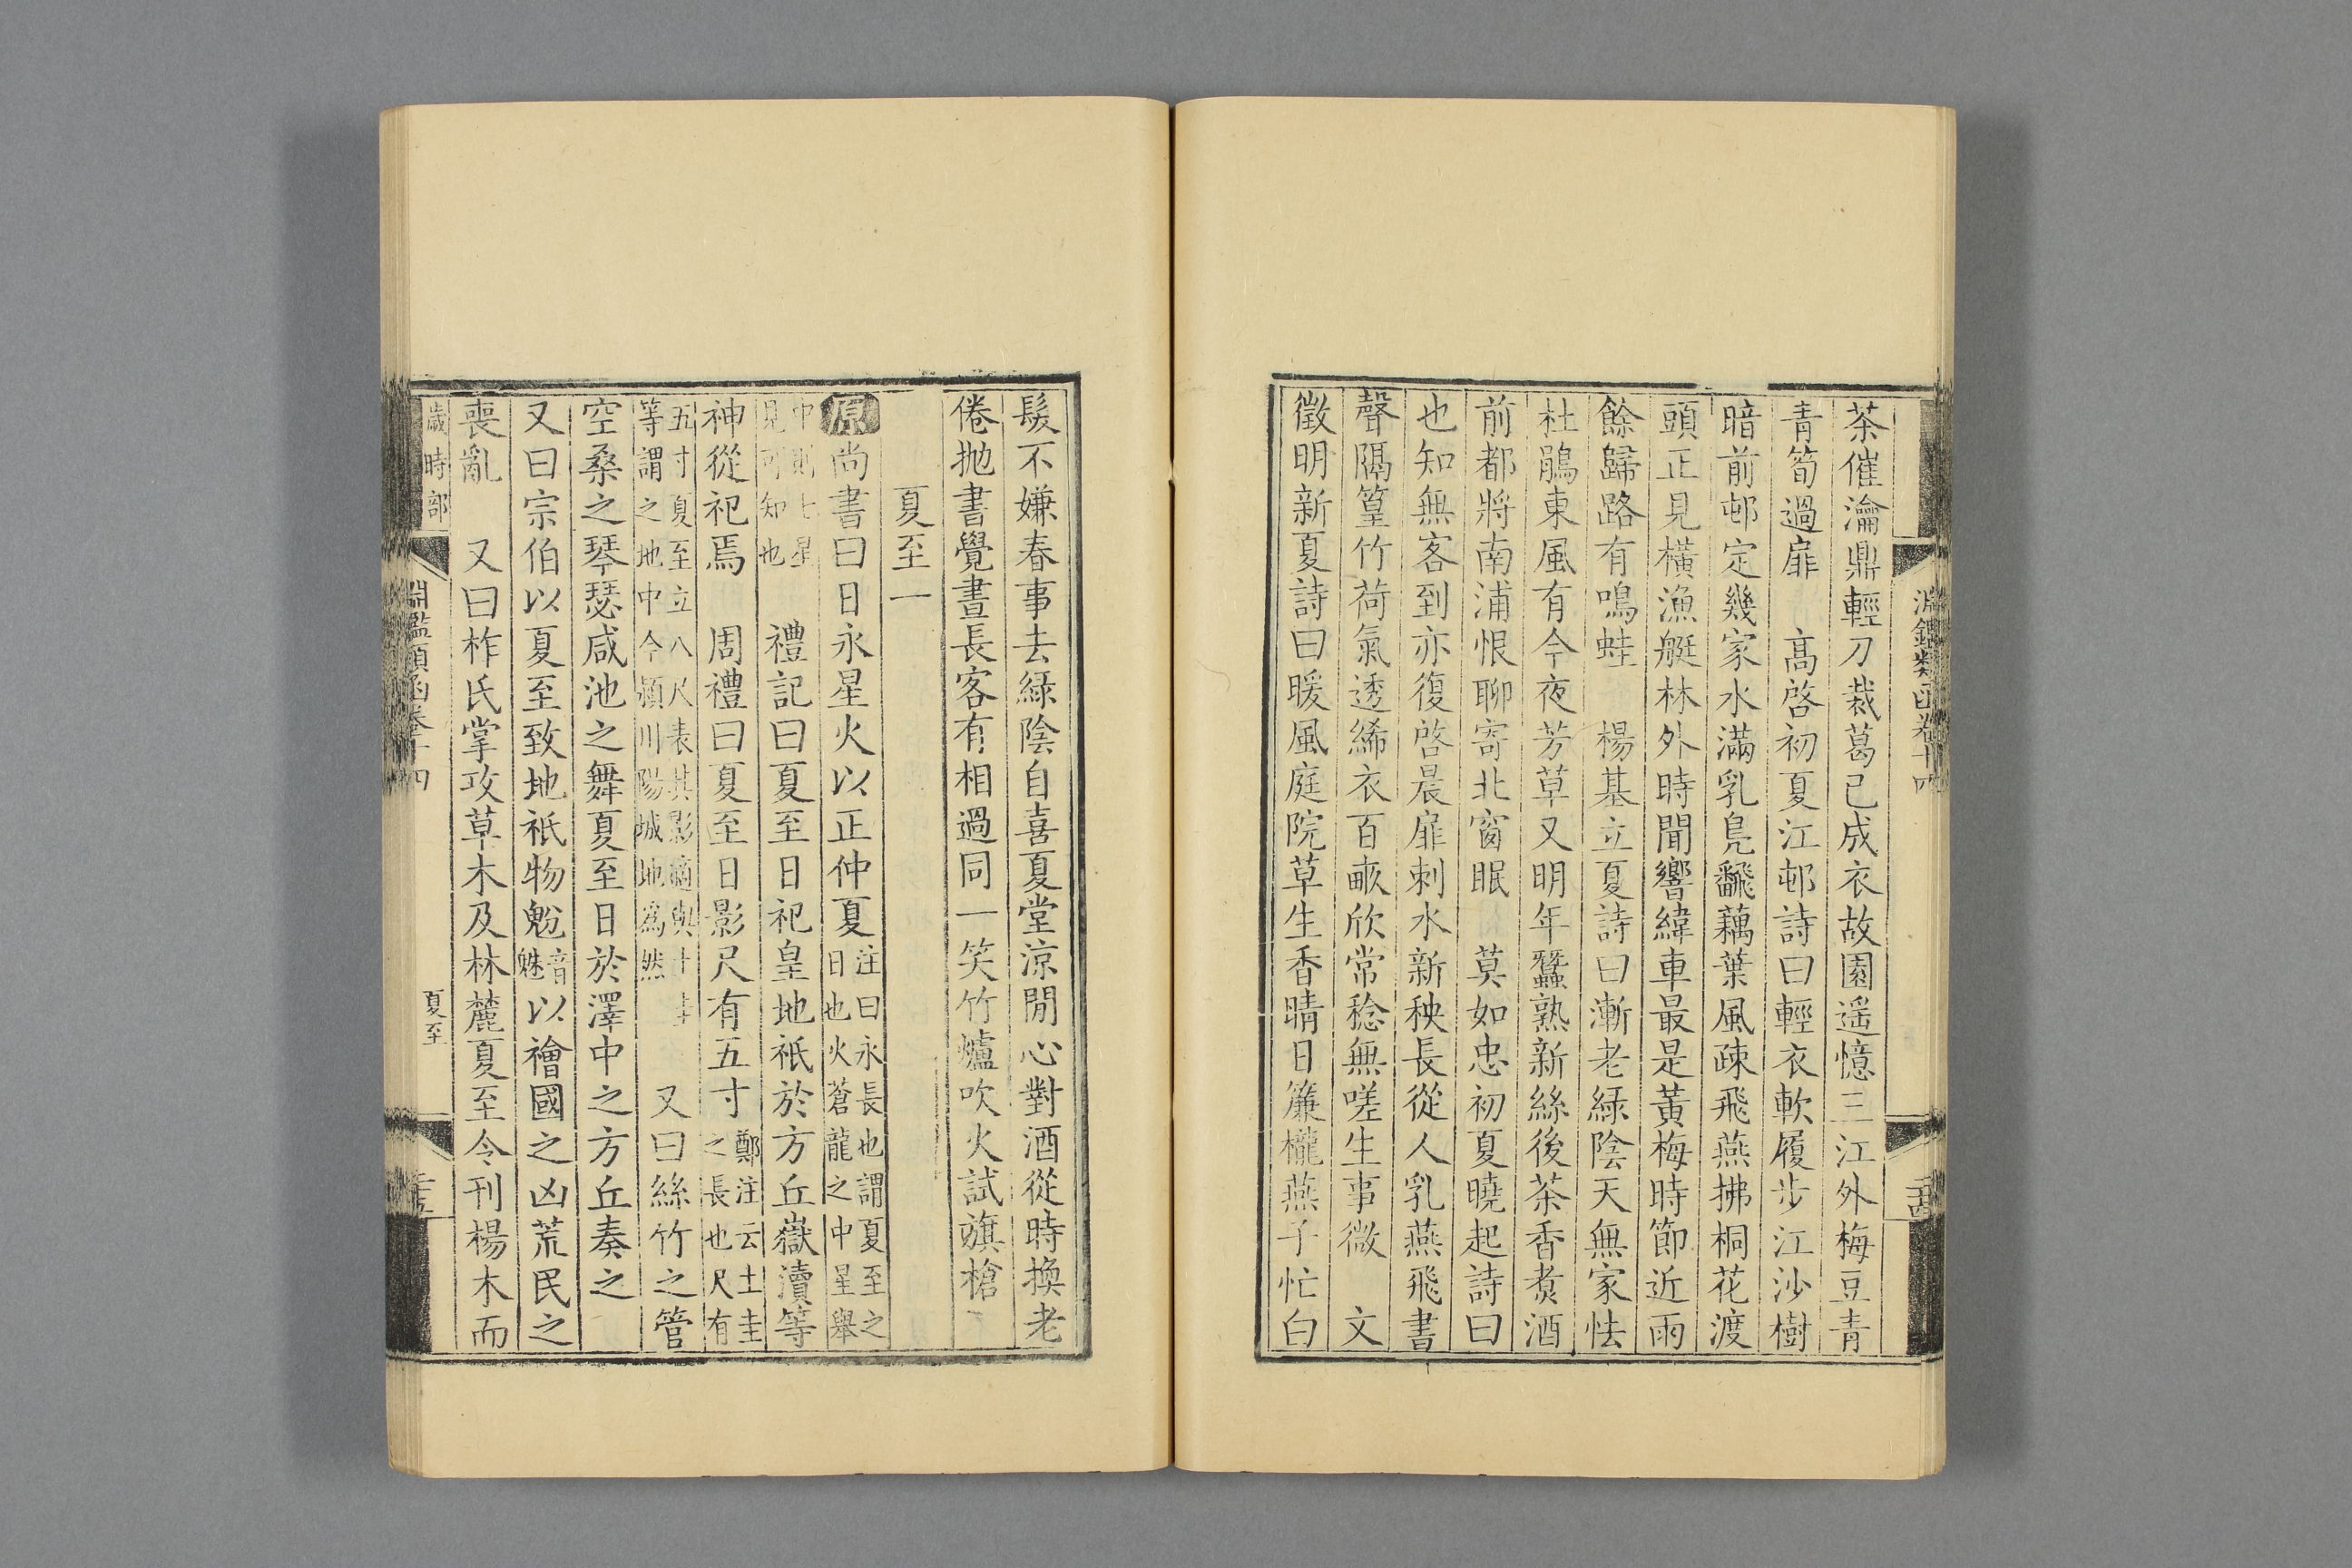 淵鑑類函卷十四
茶催瀹鼎輕刀裁葛已成衣故園遥憶三江外梅豆青
青筍過扉 高啓初夏江邨詩曰輕衣軟履步江沙樹
暗前邨定幾家水滿乳鳧飜藕葉風疎飛燕拂桐花渡
頭正見橫漁艇林外時聞響緯車最是黃梅時節近雨
餘歸路有鳴蛙 楊基立夏詩曰漸老綠陰天無家怯
杜鵑東風有今夜芳草又明年蠶熟新絲後茶香煑酒
前都將南浦恨聊寄北窗眠 莫如忠初夏曉起詩曰
也知無客到亦復啓晨扉刺水新秧長從人乳燕飛書
聲隔篁竹荷氣透絺衣百畝欣常稔無嗟生事微 文
徵明新夏詩曰暖風庭院草生香晴日簾櫳燕子忙白
髮不嫌春事去綠陰自喜夏堂涼閒心對酒從時換老
倦拋書覺晝長客有相過同一笑竹爐吹火試旗槍
夏至一
原尚書曰日永星火以正仲夏注曰永長也謂夏至之
日也火蒼龍之中星舉
中則七星
見可知也 禮記曰夏至日祀皇地祇於方丘嶽瀆等
神從祀焉 周禮曰夏至日影尺有五寸鄭注云土圭
之長也尺有
五寸夏至立八尺表其影適與土圭
等謂之地中今潁川陽城地為然 又曰絲竹之管
空桑之琴瑟咸池之舞夏至日於澤中之方丘奏之
又曰宗伯以夏至致地祇物鬽音
魅以禬國之凶荒民之
喪亂 又曰柞氏掌攻草木及林麓夏至令刊楊木而
歲時部
淵鑑類函卷十四
夏至